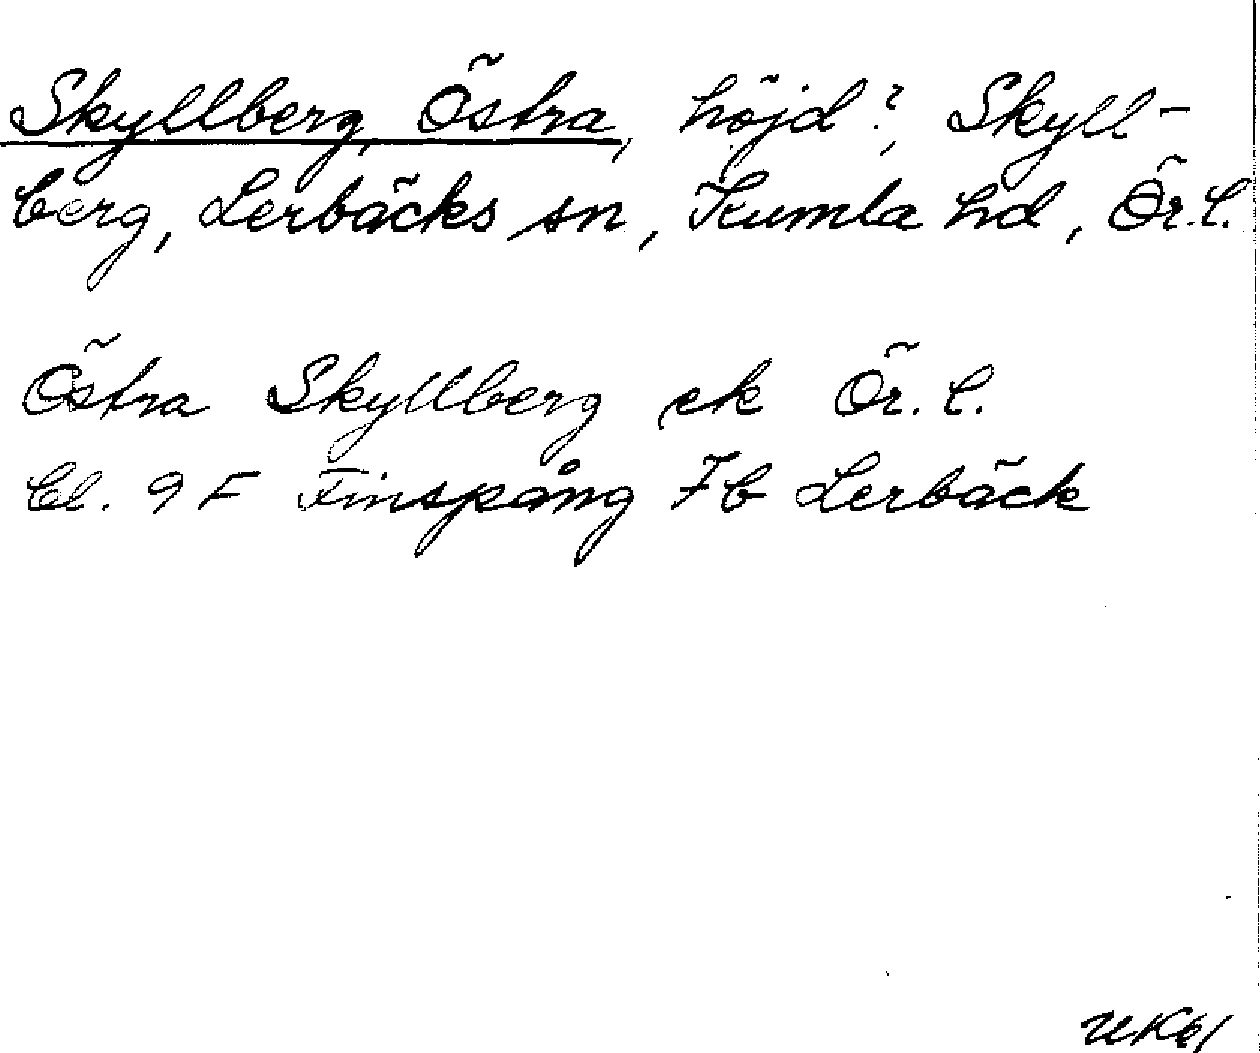 Skyllberg, Östra, höjd?, Skyll-
berg, Lerbäcks sn, Kumla hd, Ör. l.
Östra Skyllberg ek Ör. l.
Bl. 9 F Finspång 7b Lerbäck